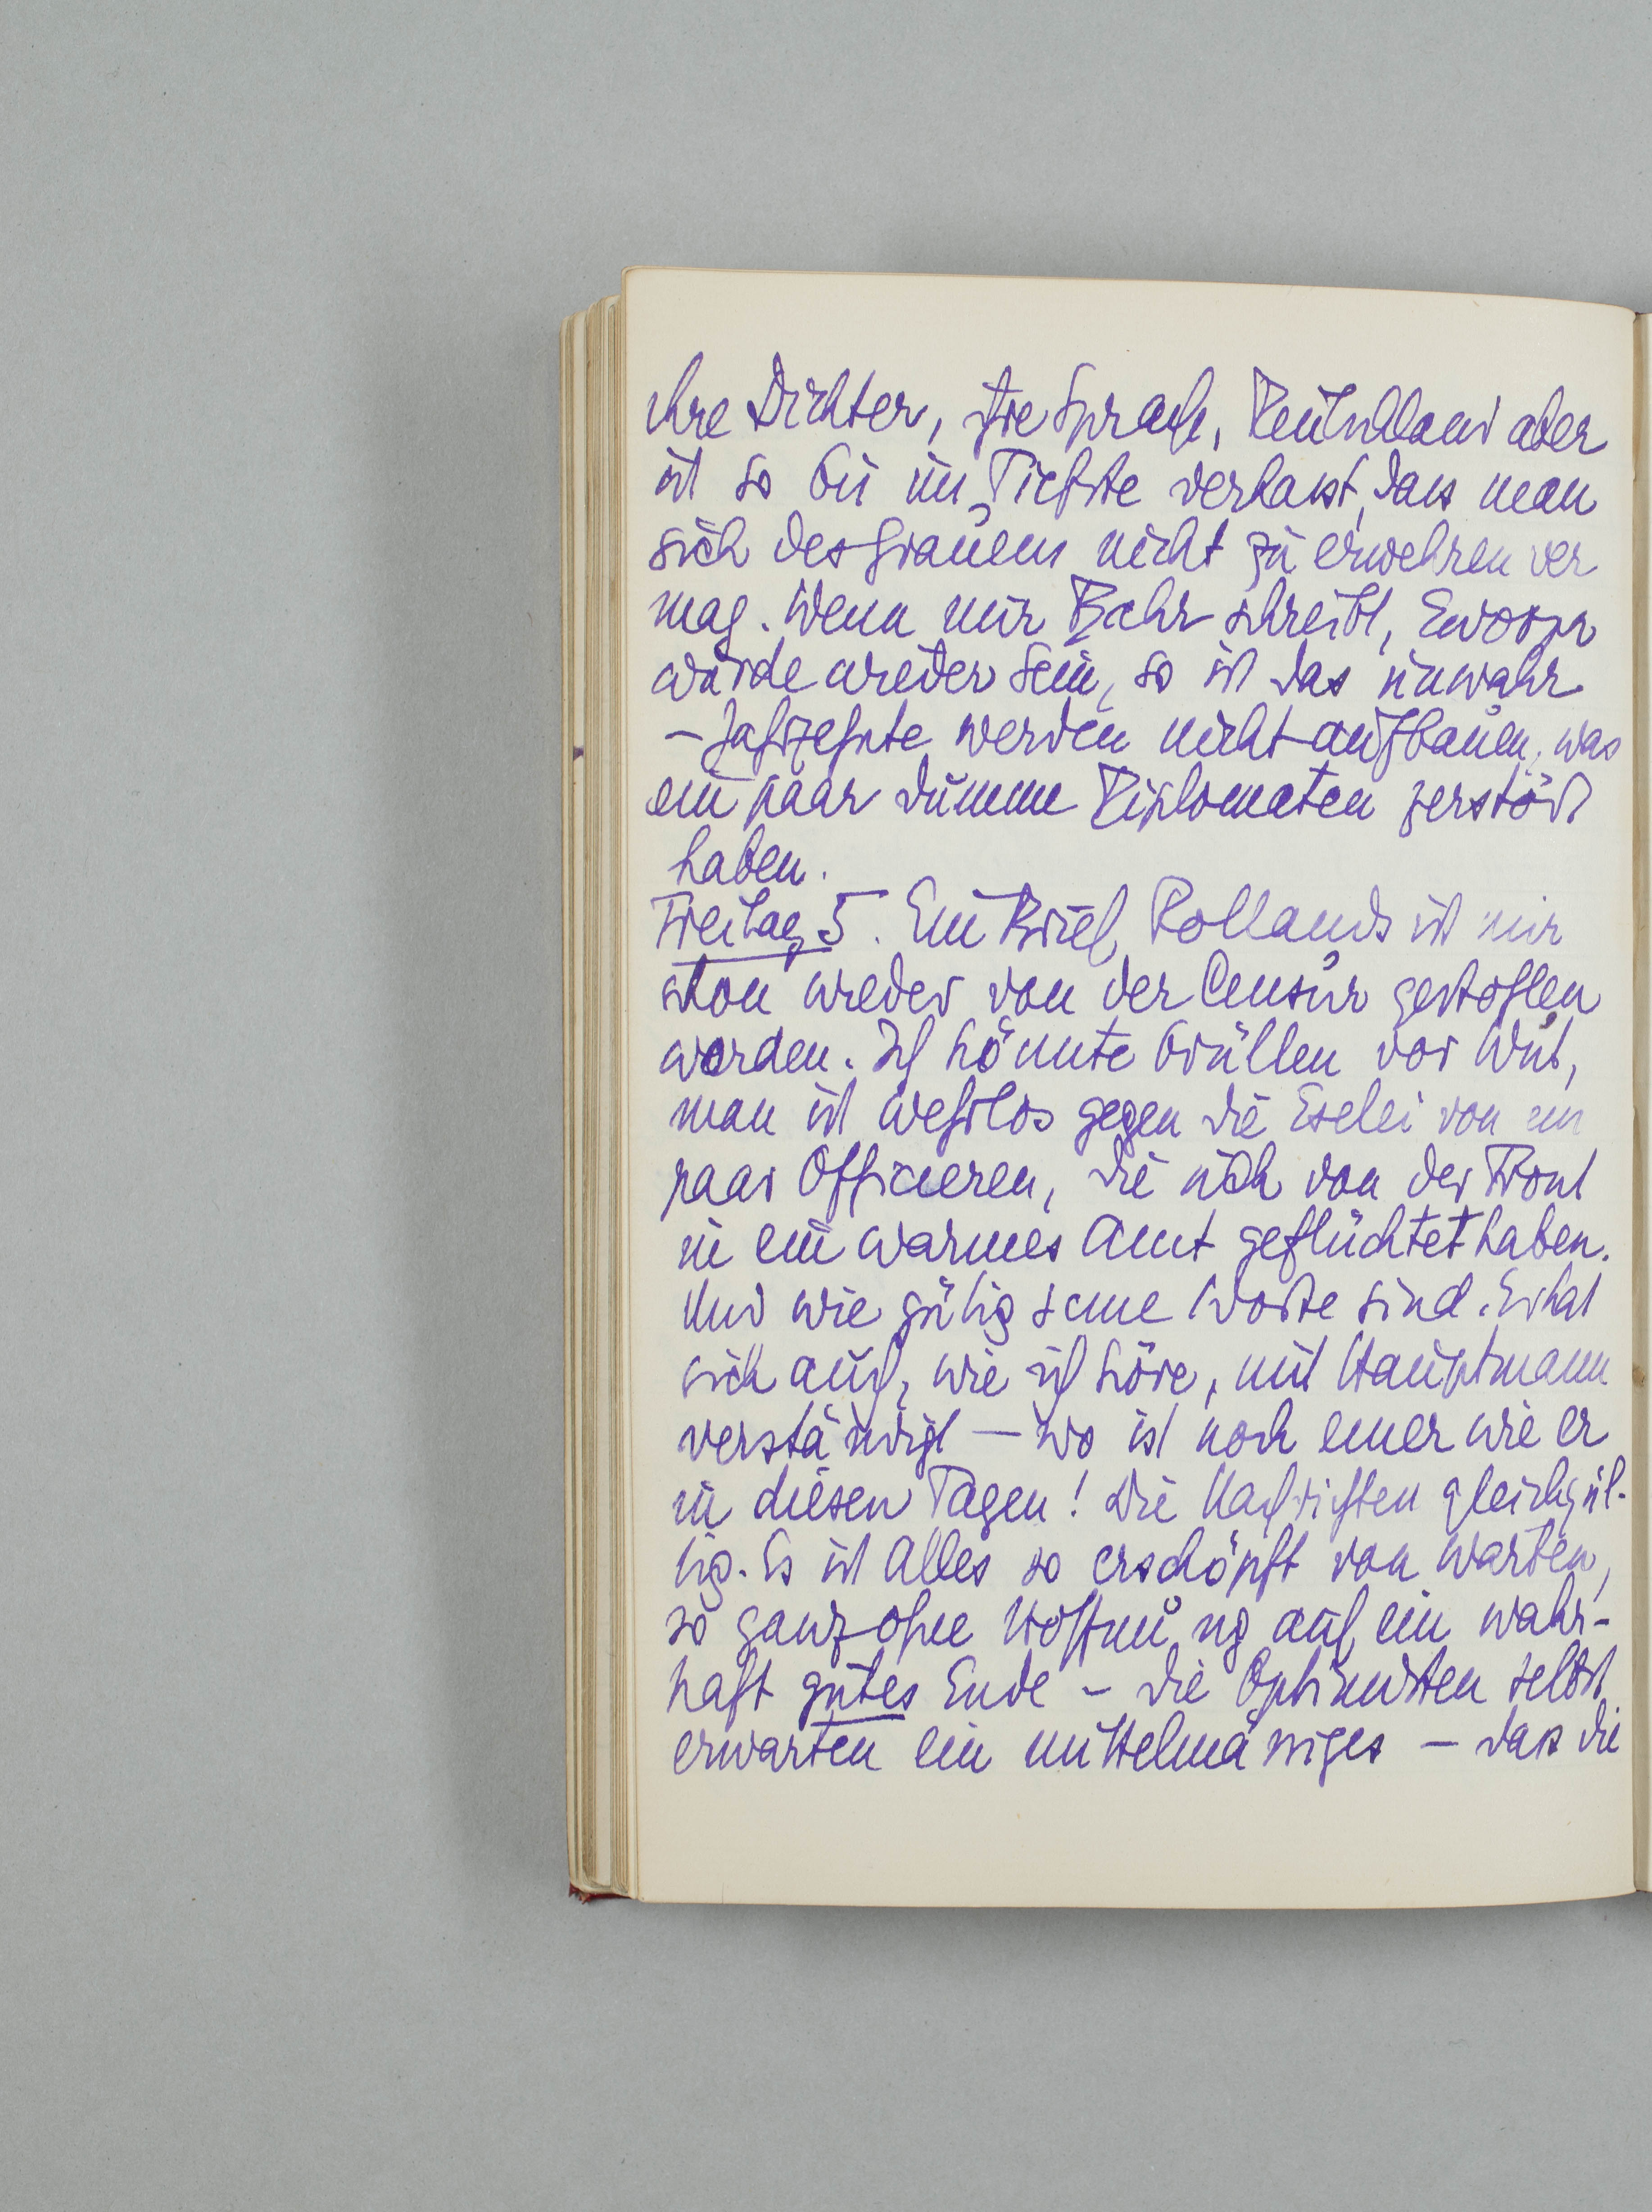 ihre Dichter, ihre Sprache, Deutschland aber
ist so bis ins Tiefste verhasst, dass man
sich des Grauens nicht zu erwehren ver
mag. Wenn mir Bahr schreibt, Europa
würde wieder sein, so ist das unwahr
– Jahrzehnte werden nicht aufbauen, was
ein paar dumme Diplomaten zerstört
haben.
Freitag 5. Ein Brief Rollands ist mir
schon wieder von der Censur gestohlen
worden. Ich könnte brüllen vor Wut,
man ist wehrlos gegen die Eselei von ein
paar Officieren, die sich von der Front
in ein warmes Amt geflüchtet haben.
Und wie gütig seine Worte sind. Er hat
sich auch, wie ich höre, mit Hauptmann
verständigt – wo ist noch einer wie er
in diesen Tagen! Die Nachrichten gleichgül-
tig. Es ist Alles so erschöpft von Warten,
so ganz ohne Hoffnung auf ein wahr-
haft gutes Ende – die Optimisten selbst
erwarten ein mittelmässiges – dass die